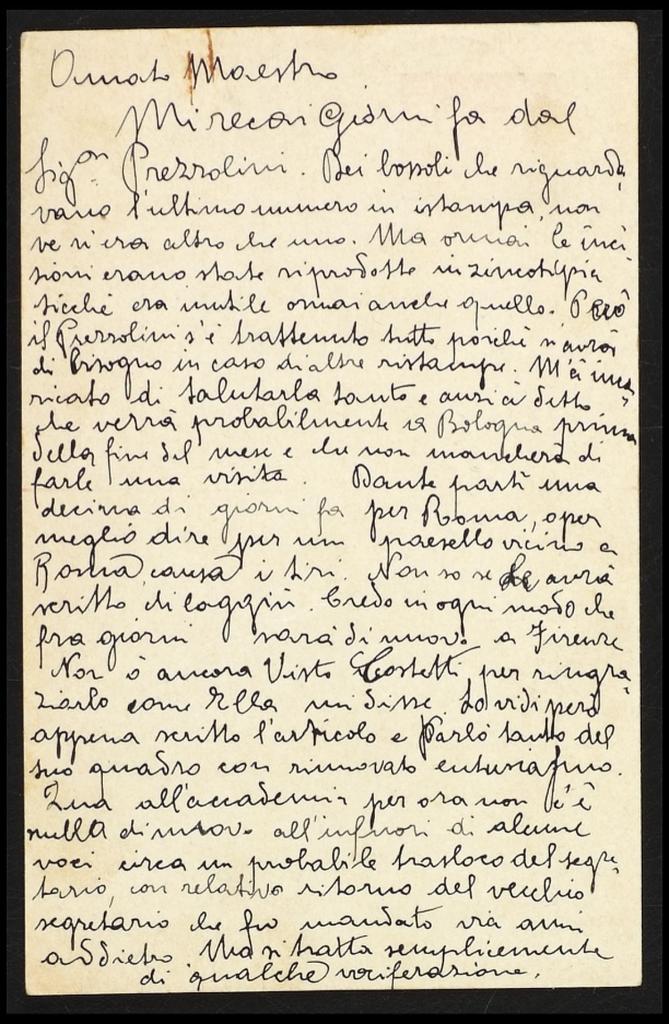 Amato Maestro
Mi recai giorni fa dal
Sigor. Prezzolini. Dei bossoli che riguarda
vano l'ultimo numero in istampa, non
ve n'era altro che uno. Ma ormai le inci
sioni erano state riprodotte in zincotipia
sicché era inutile ormai anche quello. Però
il Prezzolini s'è trattenuto tutto poiché n'avrà
di bisogno in caso di altre ristampe. M'à inca
ricato di salutarla tanto e anzi à detto
che verrà probabilmente a Bologna prima
della fine del mese e che non mancherà di
farle una visita. Dante partì una
decina di giorni fa per Roma, o per
meglio dire per un paesello vicino a
Roma, causa i tiri. Non so se Le avrà
scritto di laggiù. Credo in ogni modo che
fra giorni sarà di nuovo a Firenze
Non ò ancora visto Costetti, per ringra-
ziarlo come Ella mi disse. Lo vidi però
appena scritto l'articolo e parlò tanto del
suo quadro con rinnovato entusiasmo.
Qua all'accademia per ora non c'è
nulla di nuovo all'infuori di alcune
voci circa un probabile trasloco del segre-
tario, con relativo ritorno del vecchio
segretario che fu mandato via anni
addietro. Ma si tratta semplicemente
di qualche vociferazione.